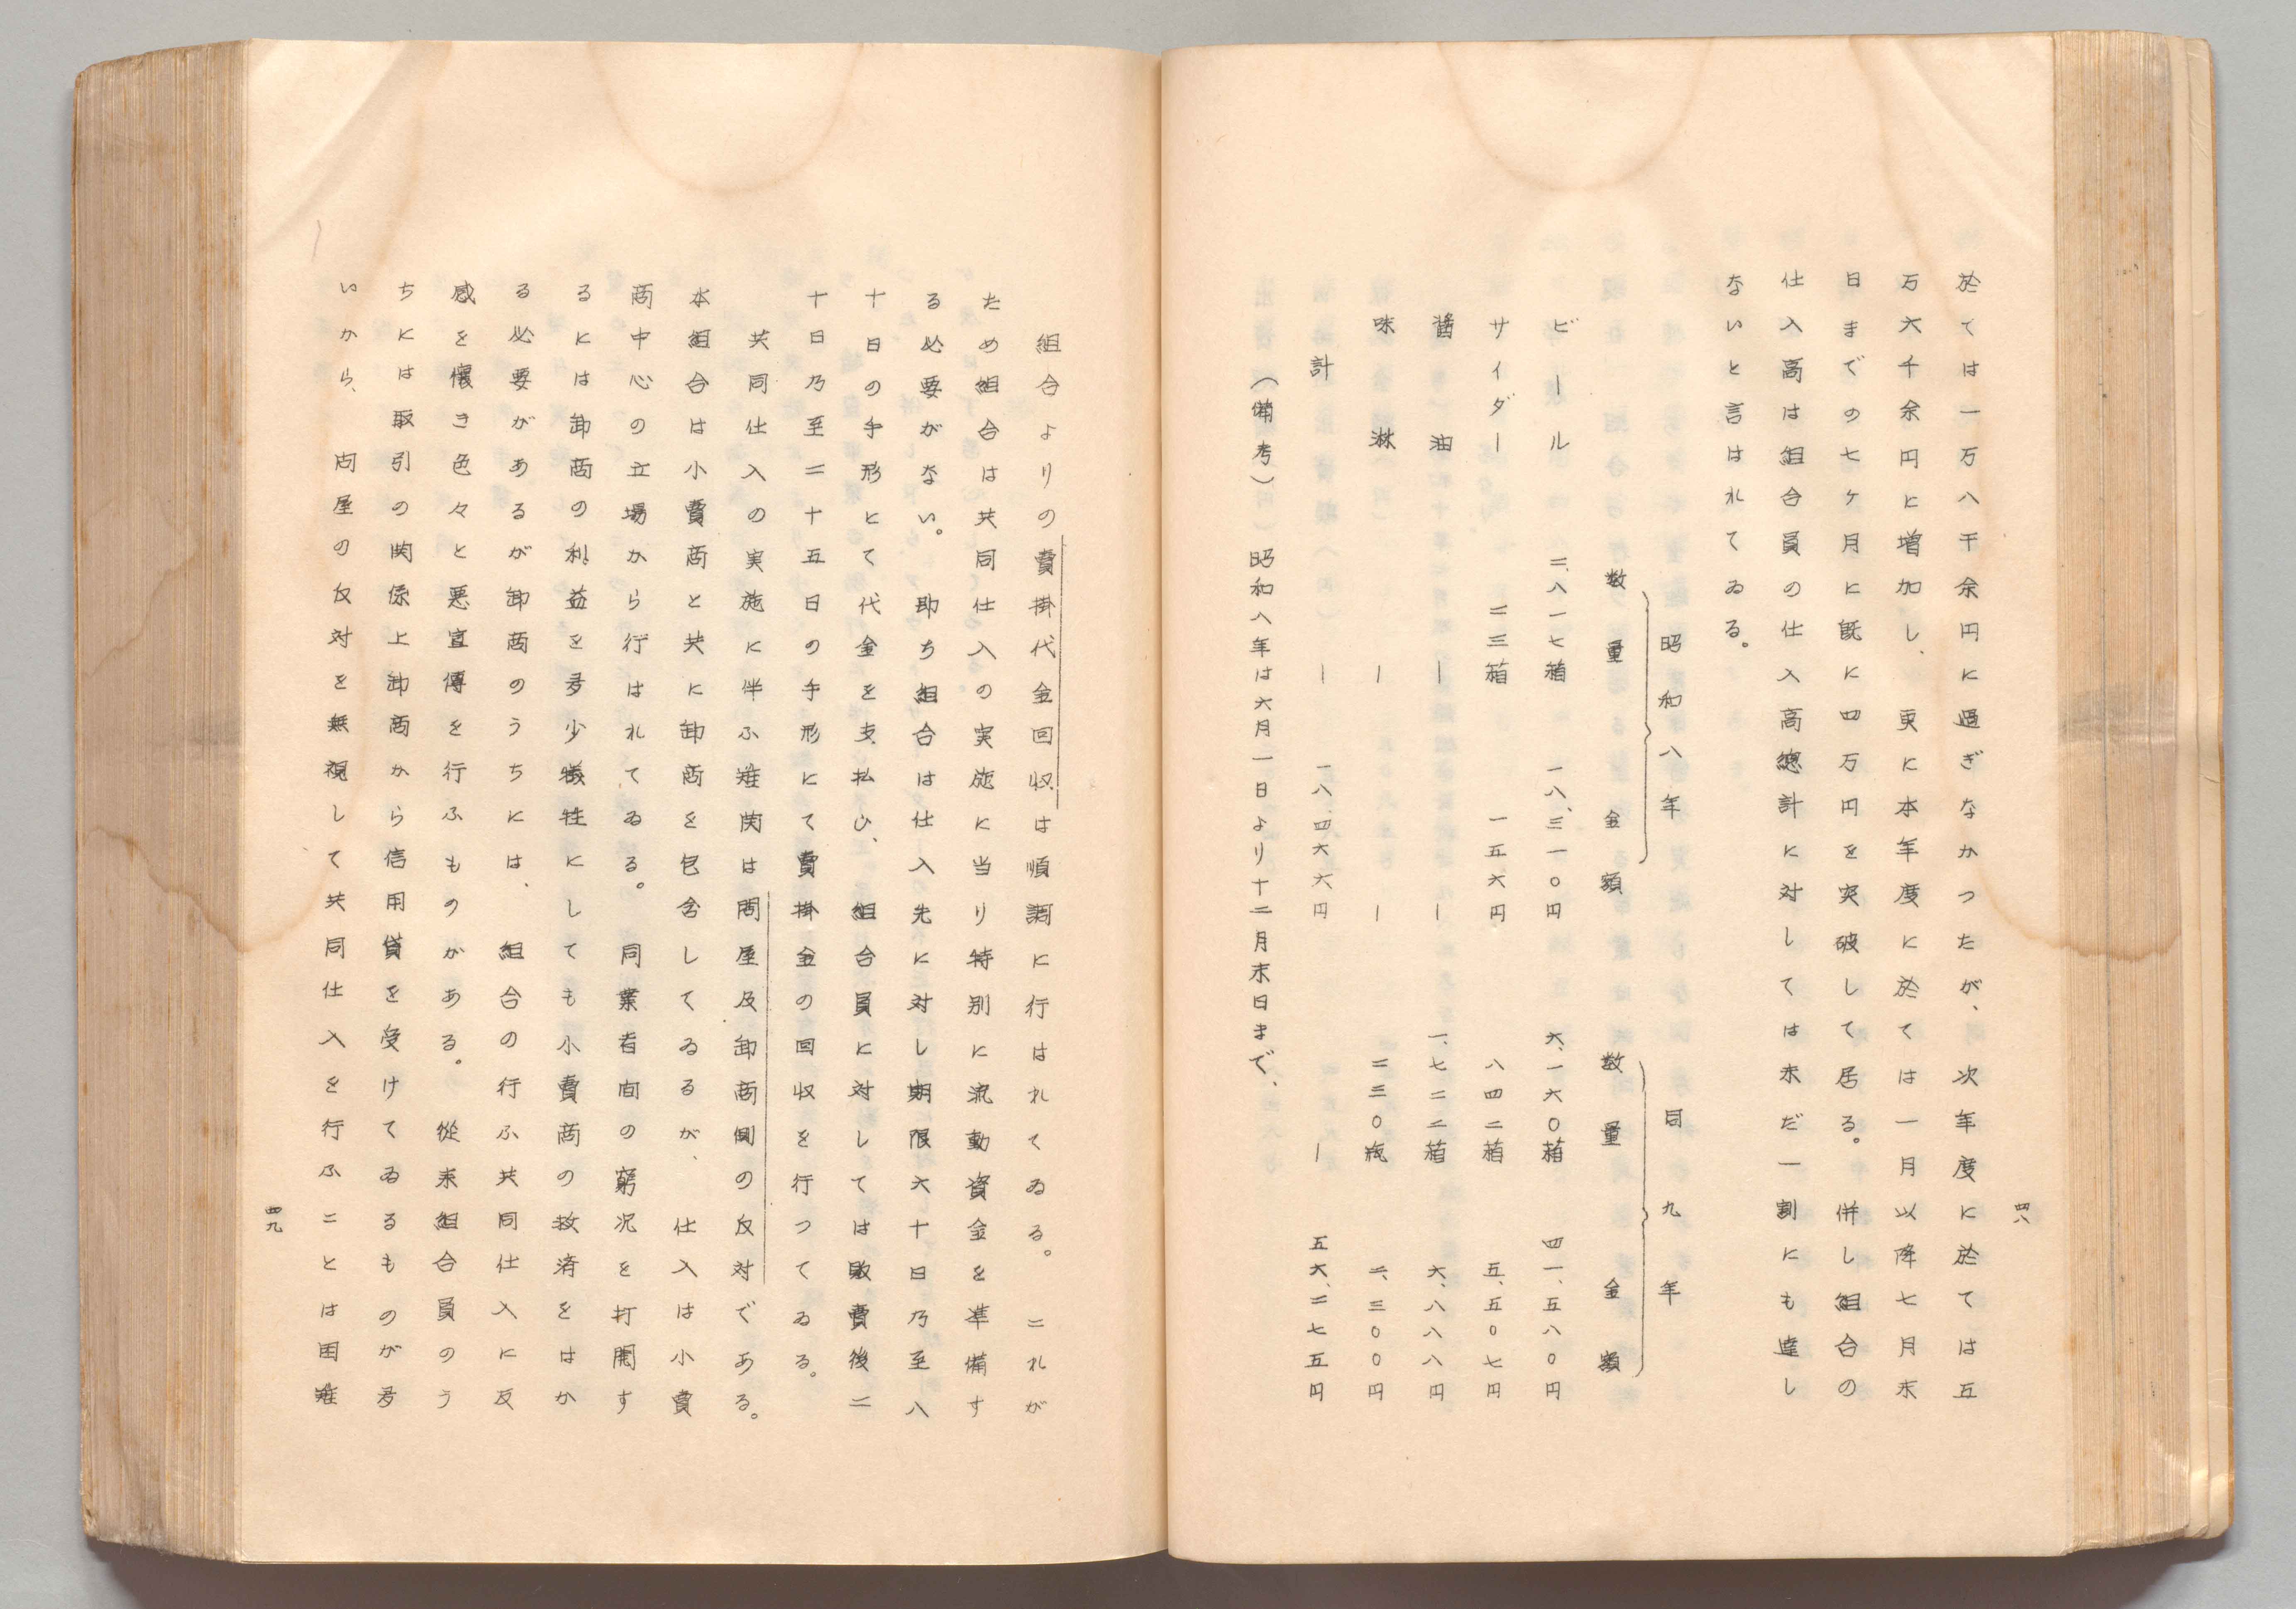 四八
於ては一万八千余円に過ぎなかつたが、次年度に於ては五
万六千余円に増加し、更に本年度に於ては一月以降七月末
日までの七ヶ月に既に四万円を突破して居る。併し組合の
仕入高は組合員の仕入高總計に対しては未だ一割にも達し
ないと言はれてゐる。
昭和八年 同九年
数量 金額 数量 金額
ビール 二、八一七箱 一八、三一〇円 六、一六〇箱 四一、五八〇円
サイダー 二三箱 一五六円 八四二箱 五、五〇七円
醬油 ― ― 一、七二二箱 六、八八八円
味淋 ― ― 二三〇瓶 二、三〇〇円
計 ― 一八、四六六円 ― 五六、二七五円
(備考)昭和八年は六月一日より十二月末日まで、
組合よりの賣掛代金回収は順調に行はれてゐる。これが
ため組合は共同仕入の実施に当り特別に流動資金を準備す
る必要がない。即ち組合は仕入先に対し期限六十日乃至八
十日の手形にて代金を支払ひ、組合員に対しては販賣後二
十日乃至二十五日の手形にて賣掛金の回収を行つてゐる。
共同仕入の実施に伴ふ難関は問屋及卸商側の反対である。
本組合は小賣商と共に卸商を包含してゐるが、仕入は小賣
商中心の立場から行はれてゐる。同業者間の窮况を打開す
るには卸商の利益を多少犠牲にしても小賣商の救済をはか
る必要があるが卸商のうちには、組合の行ふ共同仕入に反
感を懷き色々と悪宣傳を行ふものがある。從来組合員のう
ちには取引の関係上卸商から信用貸を受けてゐるものが多
いから、問屋の反対を無視して共同仕入を行ふことは困難
四九